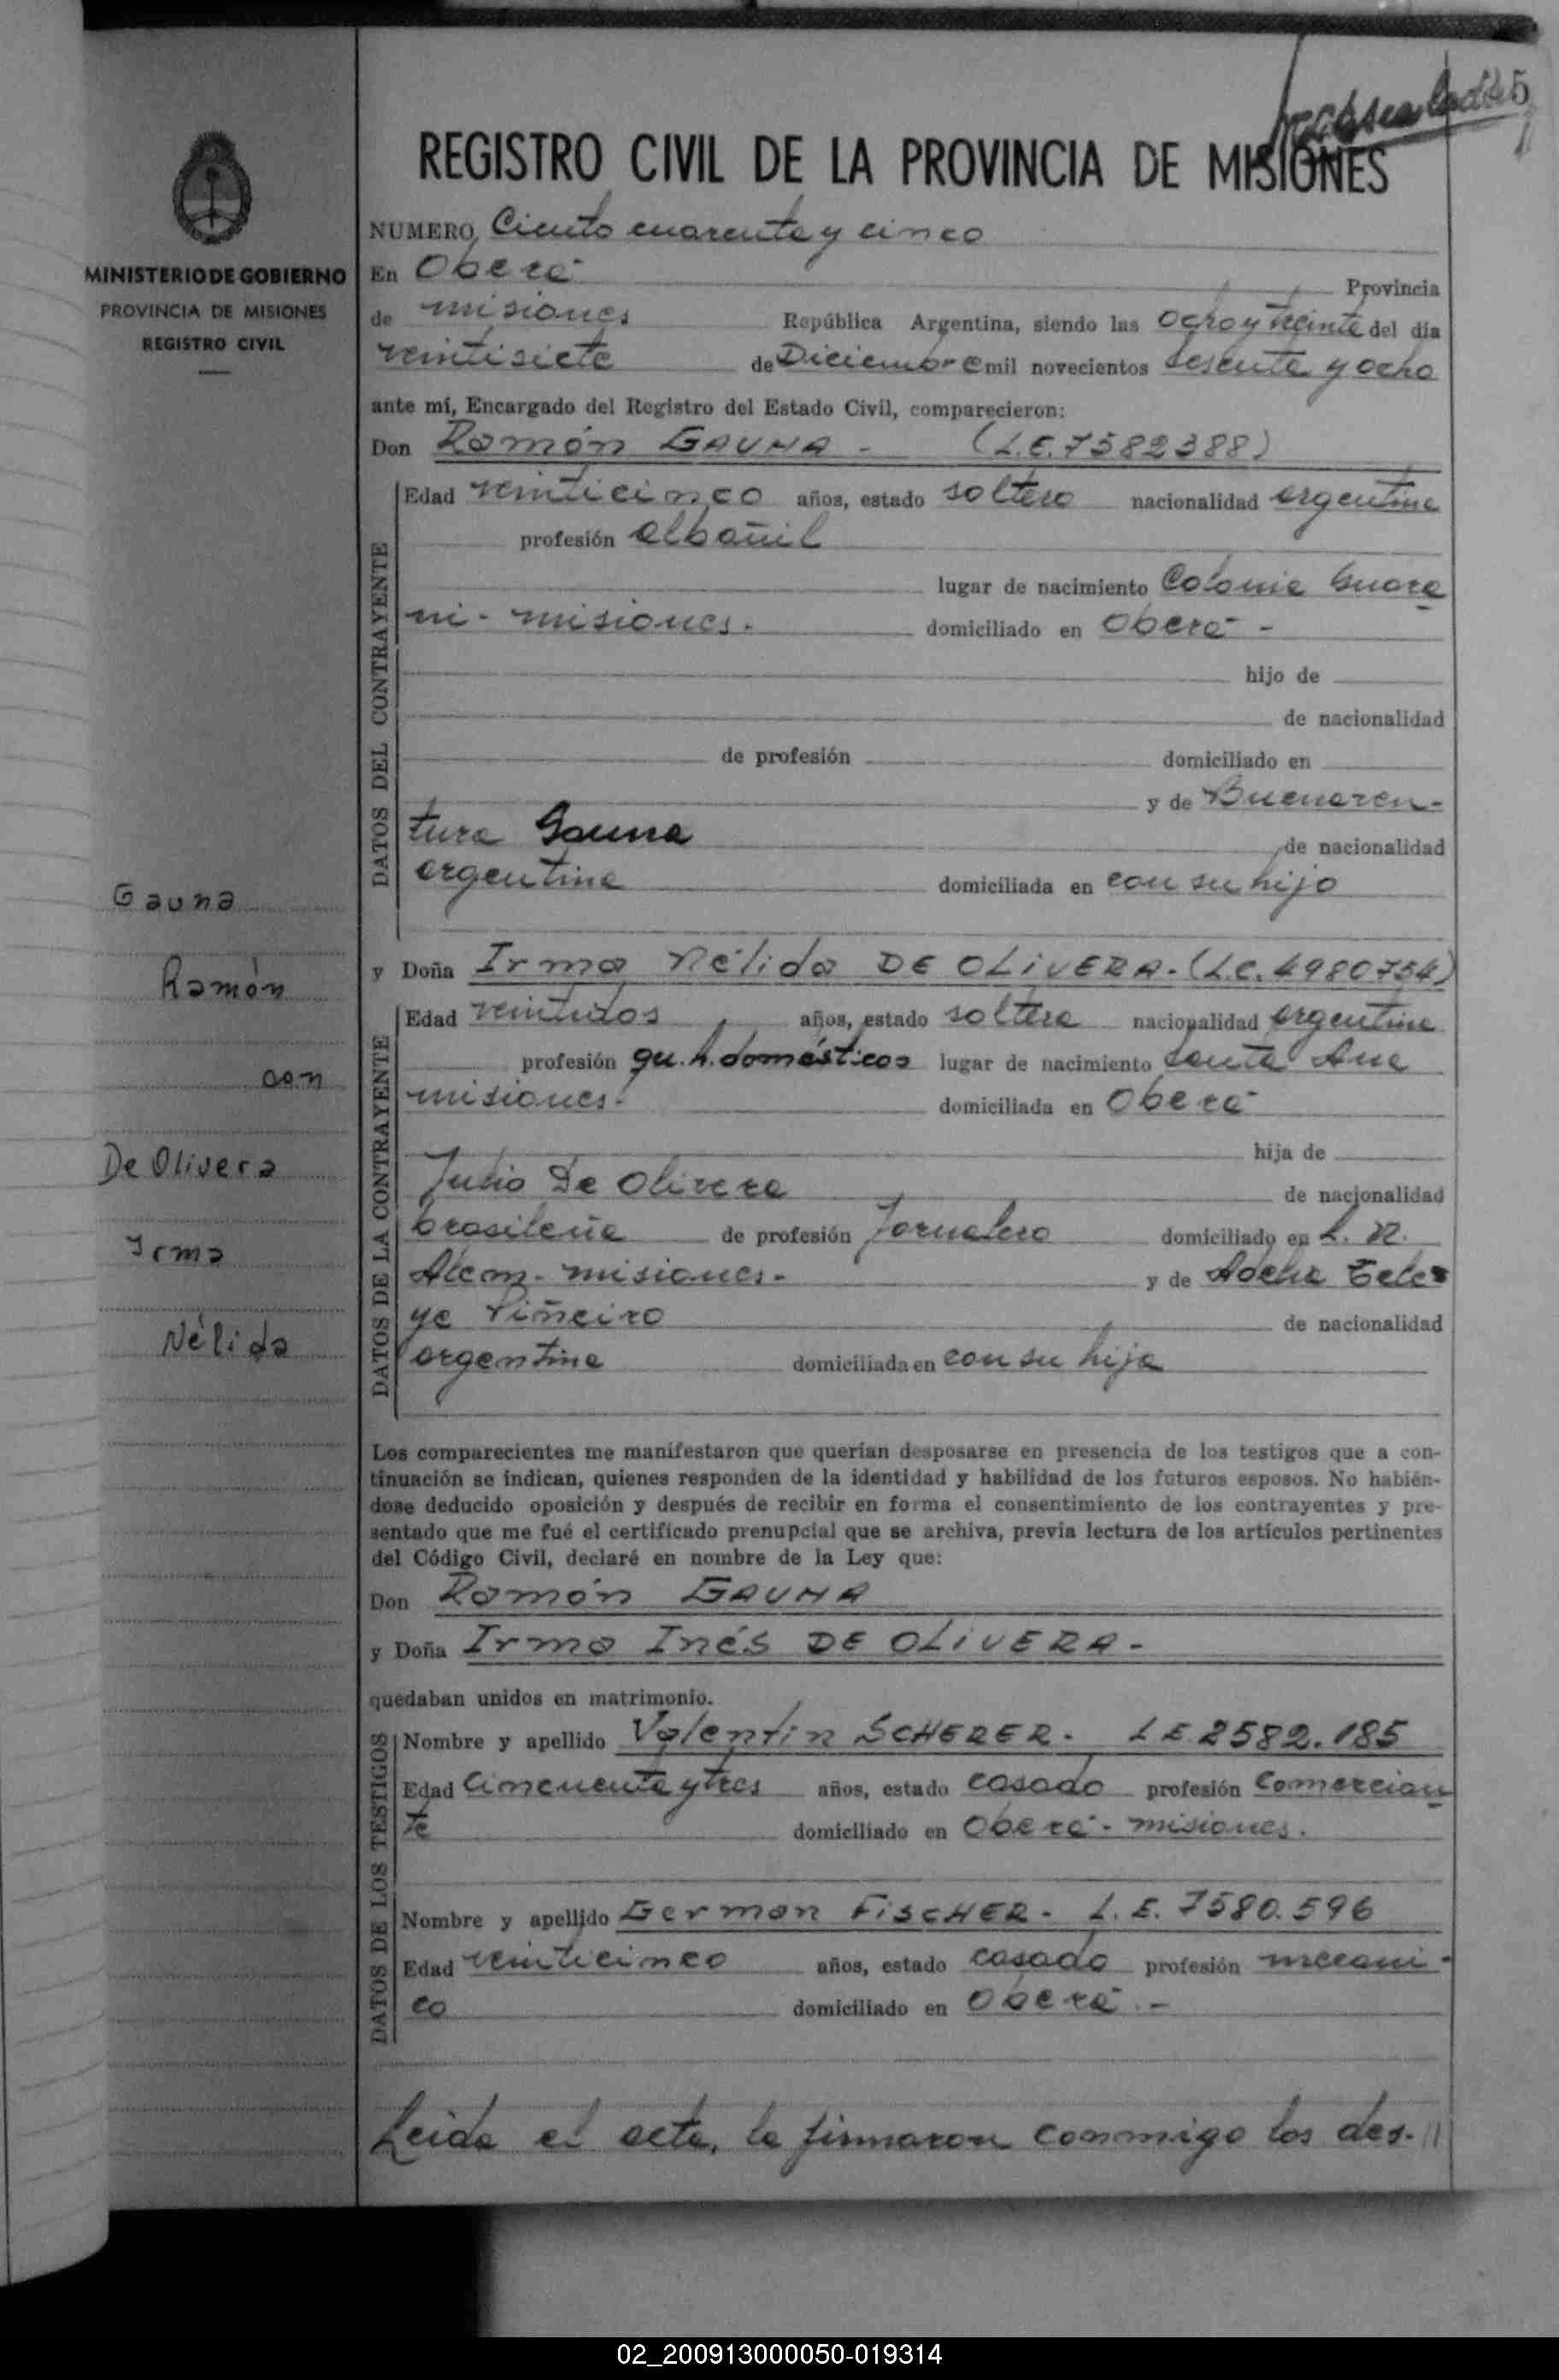 REGISTRO CIVIL DE LA PROVINCIA DE MISIONES
MINISTERIO DE GOBIERNO
PROVINCIA DE MISIONES
REGISTRO CIVIL
NUMERO Ciento cuarenta y cinco
En Oberá Provincia
de misiones República Argentina, siendo las Ocho y treinta del día
veintisiete de Diciembre mil novecientos sesenta y ocho
ante mí, Encargado del Registro del Estado Civil, comparecieron:
Don Ramón GAUNA - (L.E. 7582388)
DATOS DEL CONTRAYENTE
Edad veinticinco años, estado soltero nacionalidad argentina
profesión albañil
lugar de nacimiento Colonia Guara
ni - misiones. domiciliado en Oberá -
hijo de
de nacionalidad
de profesión domiciliado en
y de Buenaven-
tura Gauna de nacionalidad
argentina domiciliada en con su hijo
Gauna
Ramón
con
De Olivera
Irma
Nélida
y Doña Irma Nélida DE OLIVERA. (L.C. 4980754)
DATOS DE LA CONTRAYENTE
Edad veintidos años, estado soltera nacionalidad argentina
profesión qu. h. domésticos lugar de nacimiento Santa Ana
misiones. domiciliada en Oberá
hija de
Julio De Olivera de nacionalidad
brasileña de profesión Jornalero domiciliado en L. N.
Alem - misiones. y de Adelia
Piñeiro de nacionalidad
argentina domiciliada en con su hija
Los comparecientes me manifestaron que querían desposarse en presencia de los testigos que a con-
tinuación se indican, quienes responden de la identidad y habilidad de los futuros esposos. No habién-
dose deducido oposición y después de recibir en forma el consentimiento de los contrayentes y pre-
sentado que me fué el certificado prenupcial que se archiva, previa lectura de los artículos pertinentes
del Código Civil, declaré en nombre de la Ley que:
Don Ramón GAUNA
y Doña Irma Inés DE OLIVERA -
quedaban unidos en matrimonio.
DATOS DE LOS TESTIGOS
Nombre y apellido Valentin SCHERER. L E 2582.185
Edad Cincuenta y tres años, estado casado profesión Comercian
te domiciliado en Oberá - misiones.
Nombre y apellido German FISCHER - L. E. 7580.596
Edad veinticinco años, estado casado profesión mecani-
co domiciliado en Oberá. -
Leida el acta, la firmaron conmigo los des. //
02_200913000050-019314